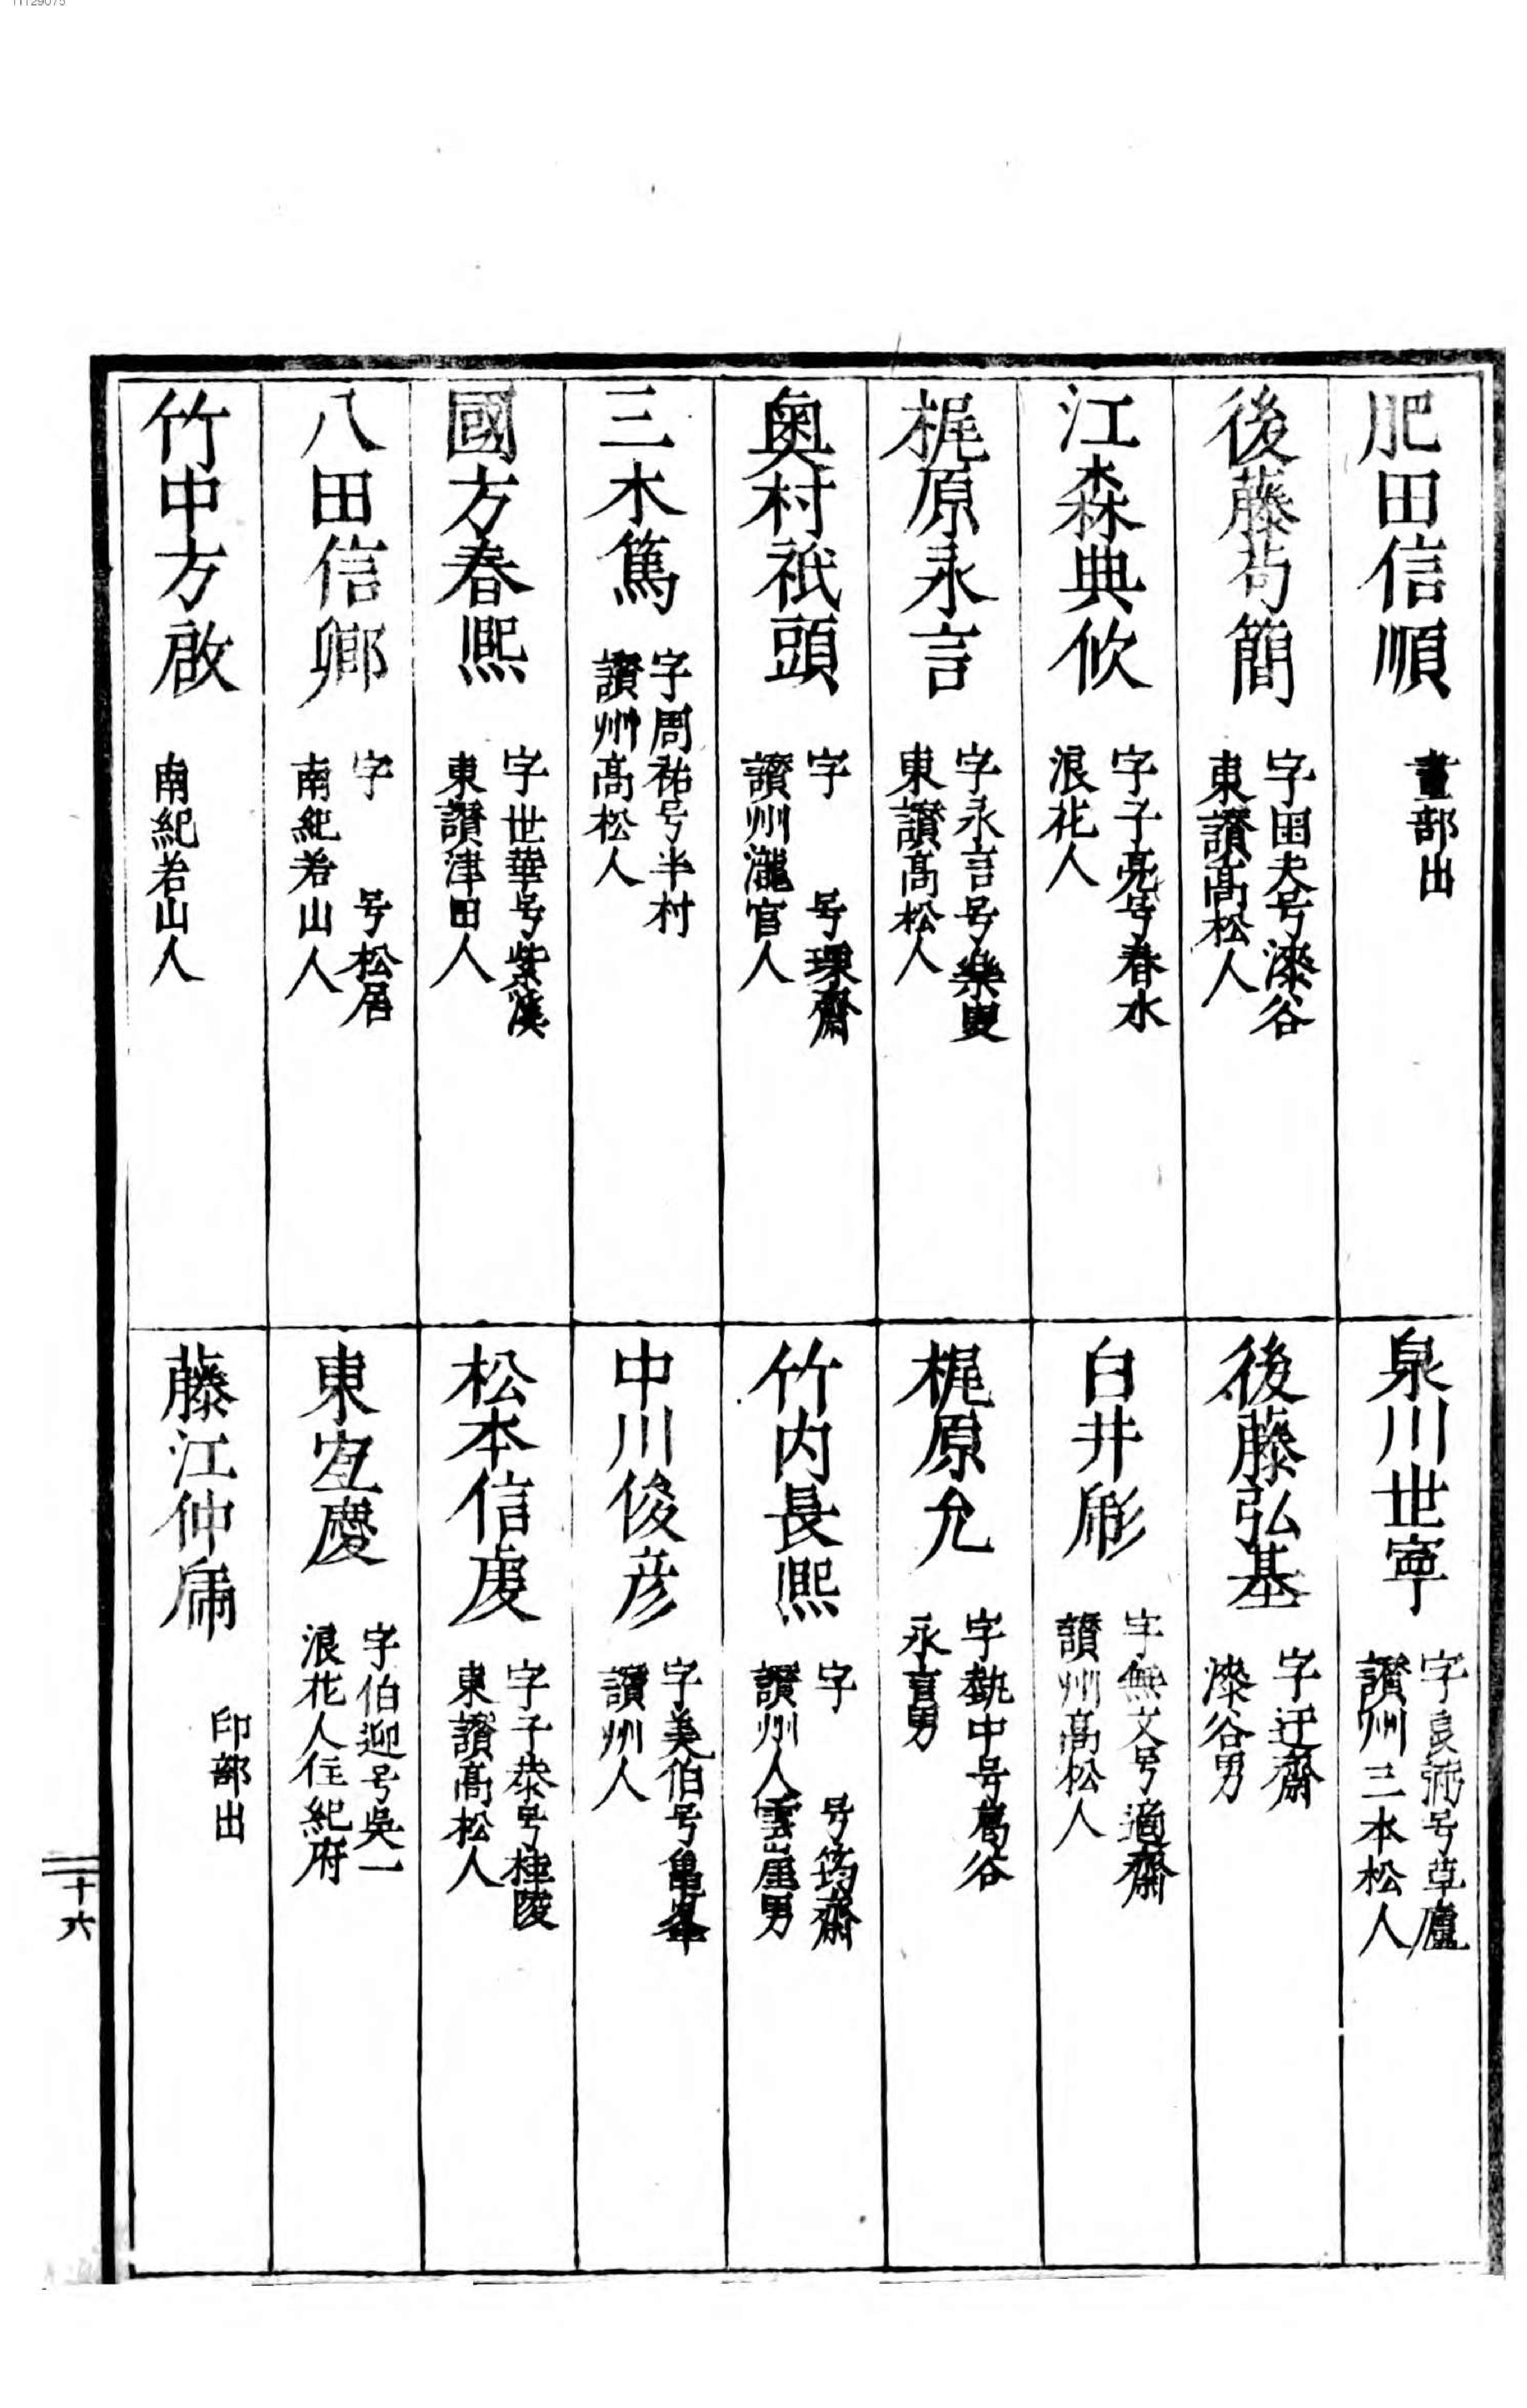 11129075
肥田信順
畫部出
後藤苟簡
字田夫号漆谷
東讃髙松人
江森典攸
字子亮号春水
浪花人
梶原永言
字永言号樂叟
東讃髙松人
奥村祇頭
字 号環齋
讃州瀧宮人
三木篤
字周祐号半村
讃州髙松人
國方春熙
字世華号紫溟
東讃津田人
八田信卿
字 号松居
南紀若山人
竹中方啟
南紀若山人
泉川世寧
字良弼号草廬
讃州三本松人
後藤弘基
字迂齋
漆谷男
白井彫
字無文号適齋
讃州髙松人
梶原允
字執中号葛谷
永言男
竹内長熙
字 号筠齋
讃州人雲崖男
中川俊彦
字美伯号亀峯
讃州人
松本信虔
字子恭号桂陵
東讃髙松人
東宜慶
字伯迎号吳一
浪花人住紀府
藤江仲扁
印部出
二十六